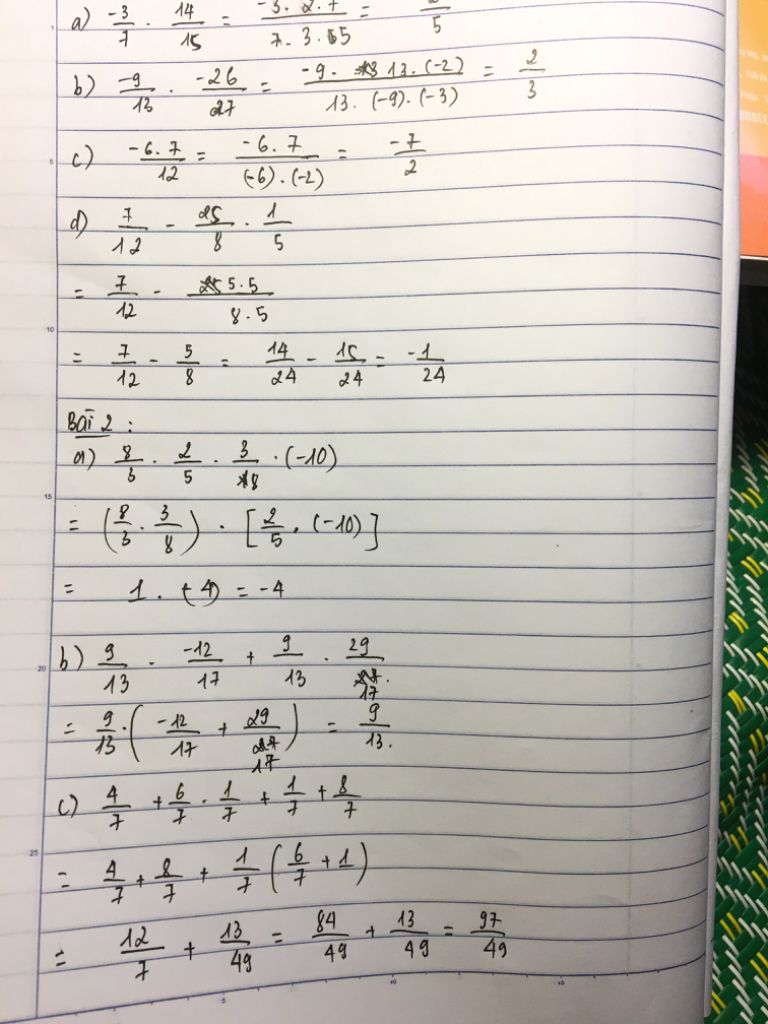 a) -3/7 . 14/15 = -3.2.7/7.3.5 = /5
b) -9/13 . -26/27 = -9.13.(-2)/13.(-9).(-3) = 2/3
c) -6.7/12 = -6.7/(-6).(-2) = -7/2
d) 7/12 - 25/8 . 1/5
= 7/12 - 5.5/8.5
= 7/12 - 5/8 = 14/24 - 15/24 = -1/24
Bài 2 :
a) 8/3 . 2/5 . 3/8 . (-10)
= (8/3 . 3/8) . [2/5 . (-10)]
= 1 . (-4) = -4
b) 9/13 . -12/17 + 9/13 . 29/17
= 9/13 . (-12/17 + 29/17) = 9/13.
c) 4/7 + 6/7 . 1/7 + 1/7 + 8/7
= 4/7 + 8/7 + 1/7 (6/7 + 1)
= 12/7 + 13/49 = 84/49 + 13/49 = 97/49